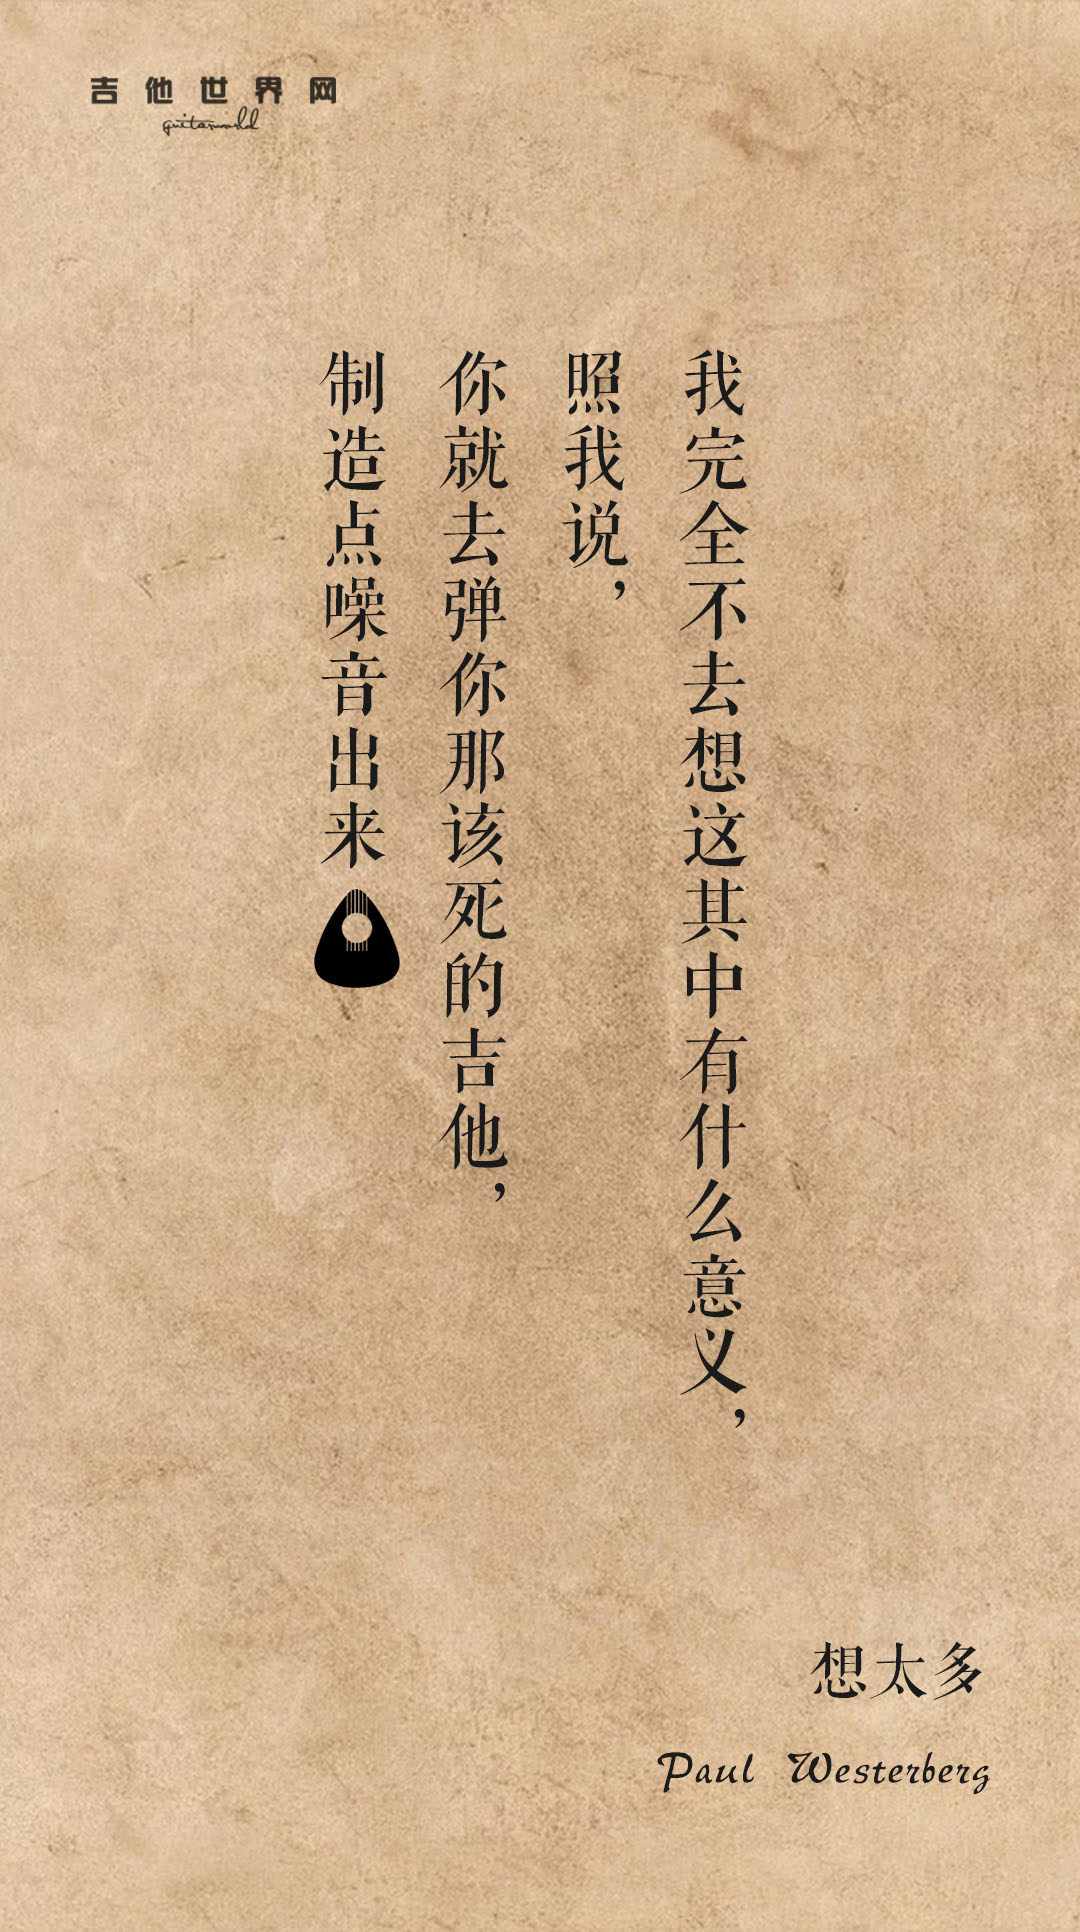 吉他世界网
guitarworld
我完全不去想这其中有什么意义，
照我说，
你就去弹你那该死的吉他，
制造点噪音出来
想太多
Paul Westerberg